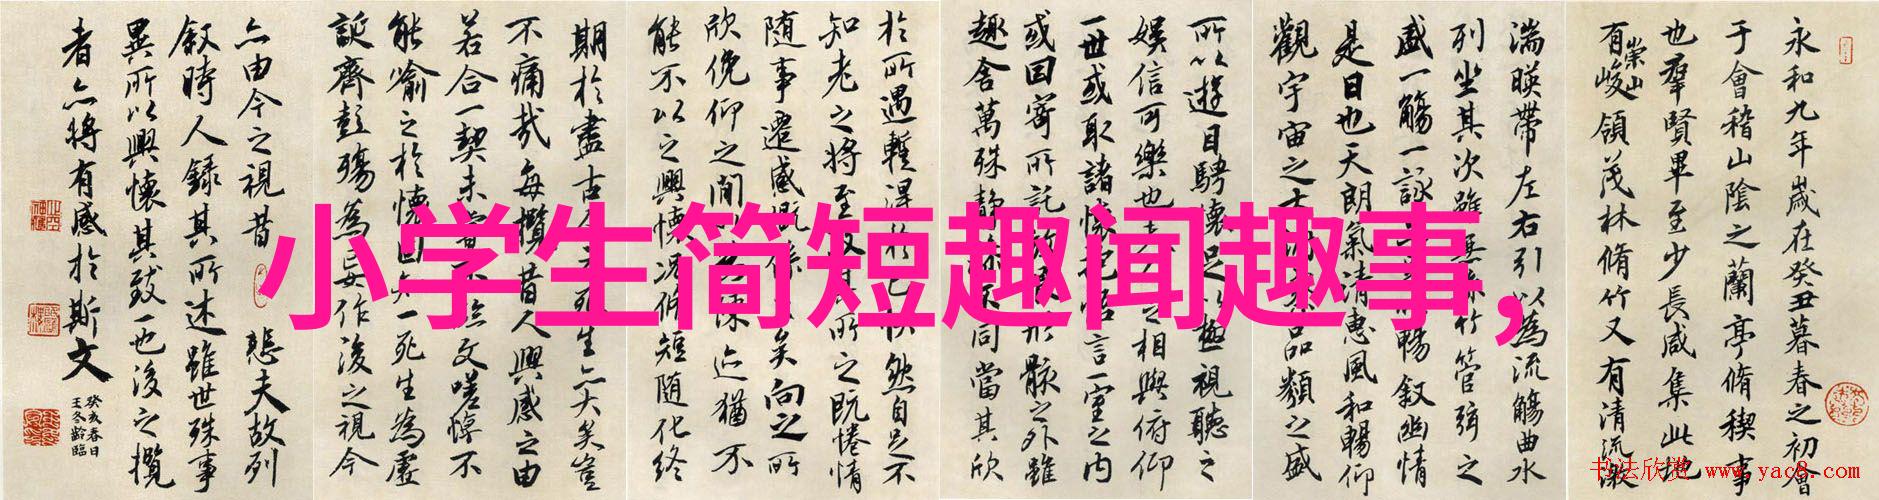 永和九年歲在癸丑暮春之初會
于會稽山陰之蘭亭脩稧事
也羣賢畢至少長咸集此地
有崇山峻領茂林脩竹又有清流激
湍暎帶左右引以為流觴曲水
列坐其次雖無絲竹管弦之
盛一觴一詠暢敘幽情
是日也天朗氣清惠風和暢仰
觀宇宙之大品類之盛
所以遊目騁懷足以極視聽之
娛信可樂也夫人之相與俯仰
一世或取諸懷抱悟言一室之內
或因寄所託形骸之外雖
趣舍萬殊靜躁不同當其欣
於所遇暫得於己快然自足不
知老之將至及其所之既惓情
随事遷感慨係之矣向之所
欣俛仰之間以為陳迹猶不
能不以之興懷況脩短随化終
期於盡古人云死生亦大矣豈
不痛哉每攬昔人興感之由
若合一契未嘗不臨文嗟悼不
能喻之於懷固知一死生為虛
誕齊彭殤為妄作後之視今
亦由今之視昔悲夫故列
敘時人錄其所述雖世殊事
異所以興懷其致一也後之攬
者亦將有感於斯文
癸亥春日
王冬齡臨
小学生简短趣闻趣事,
书法欣赏 www.yac8.com